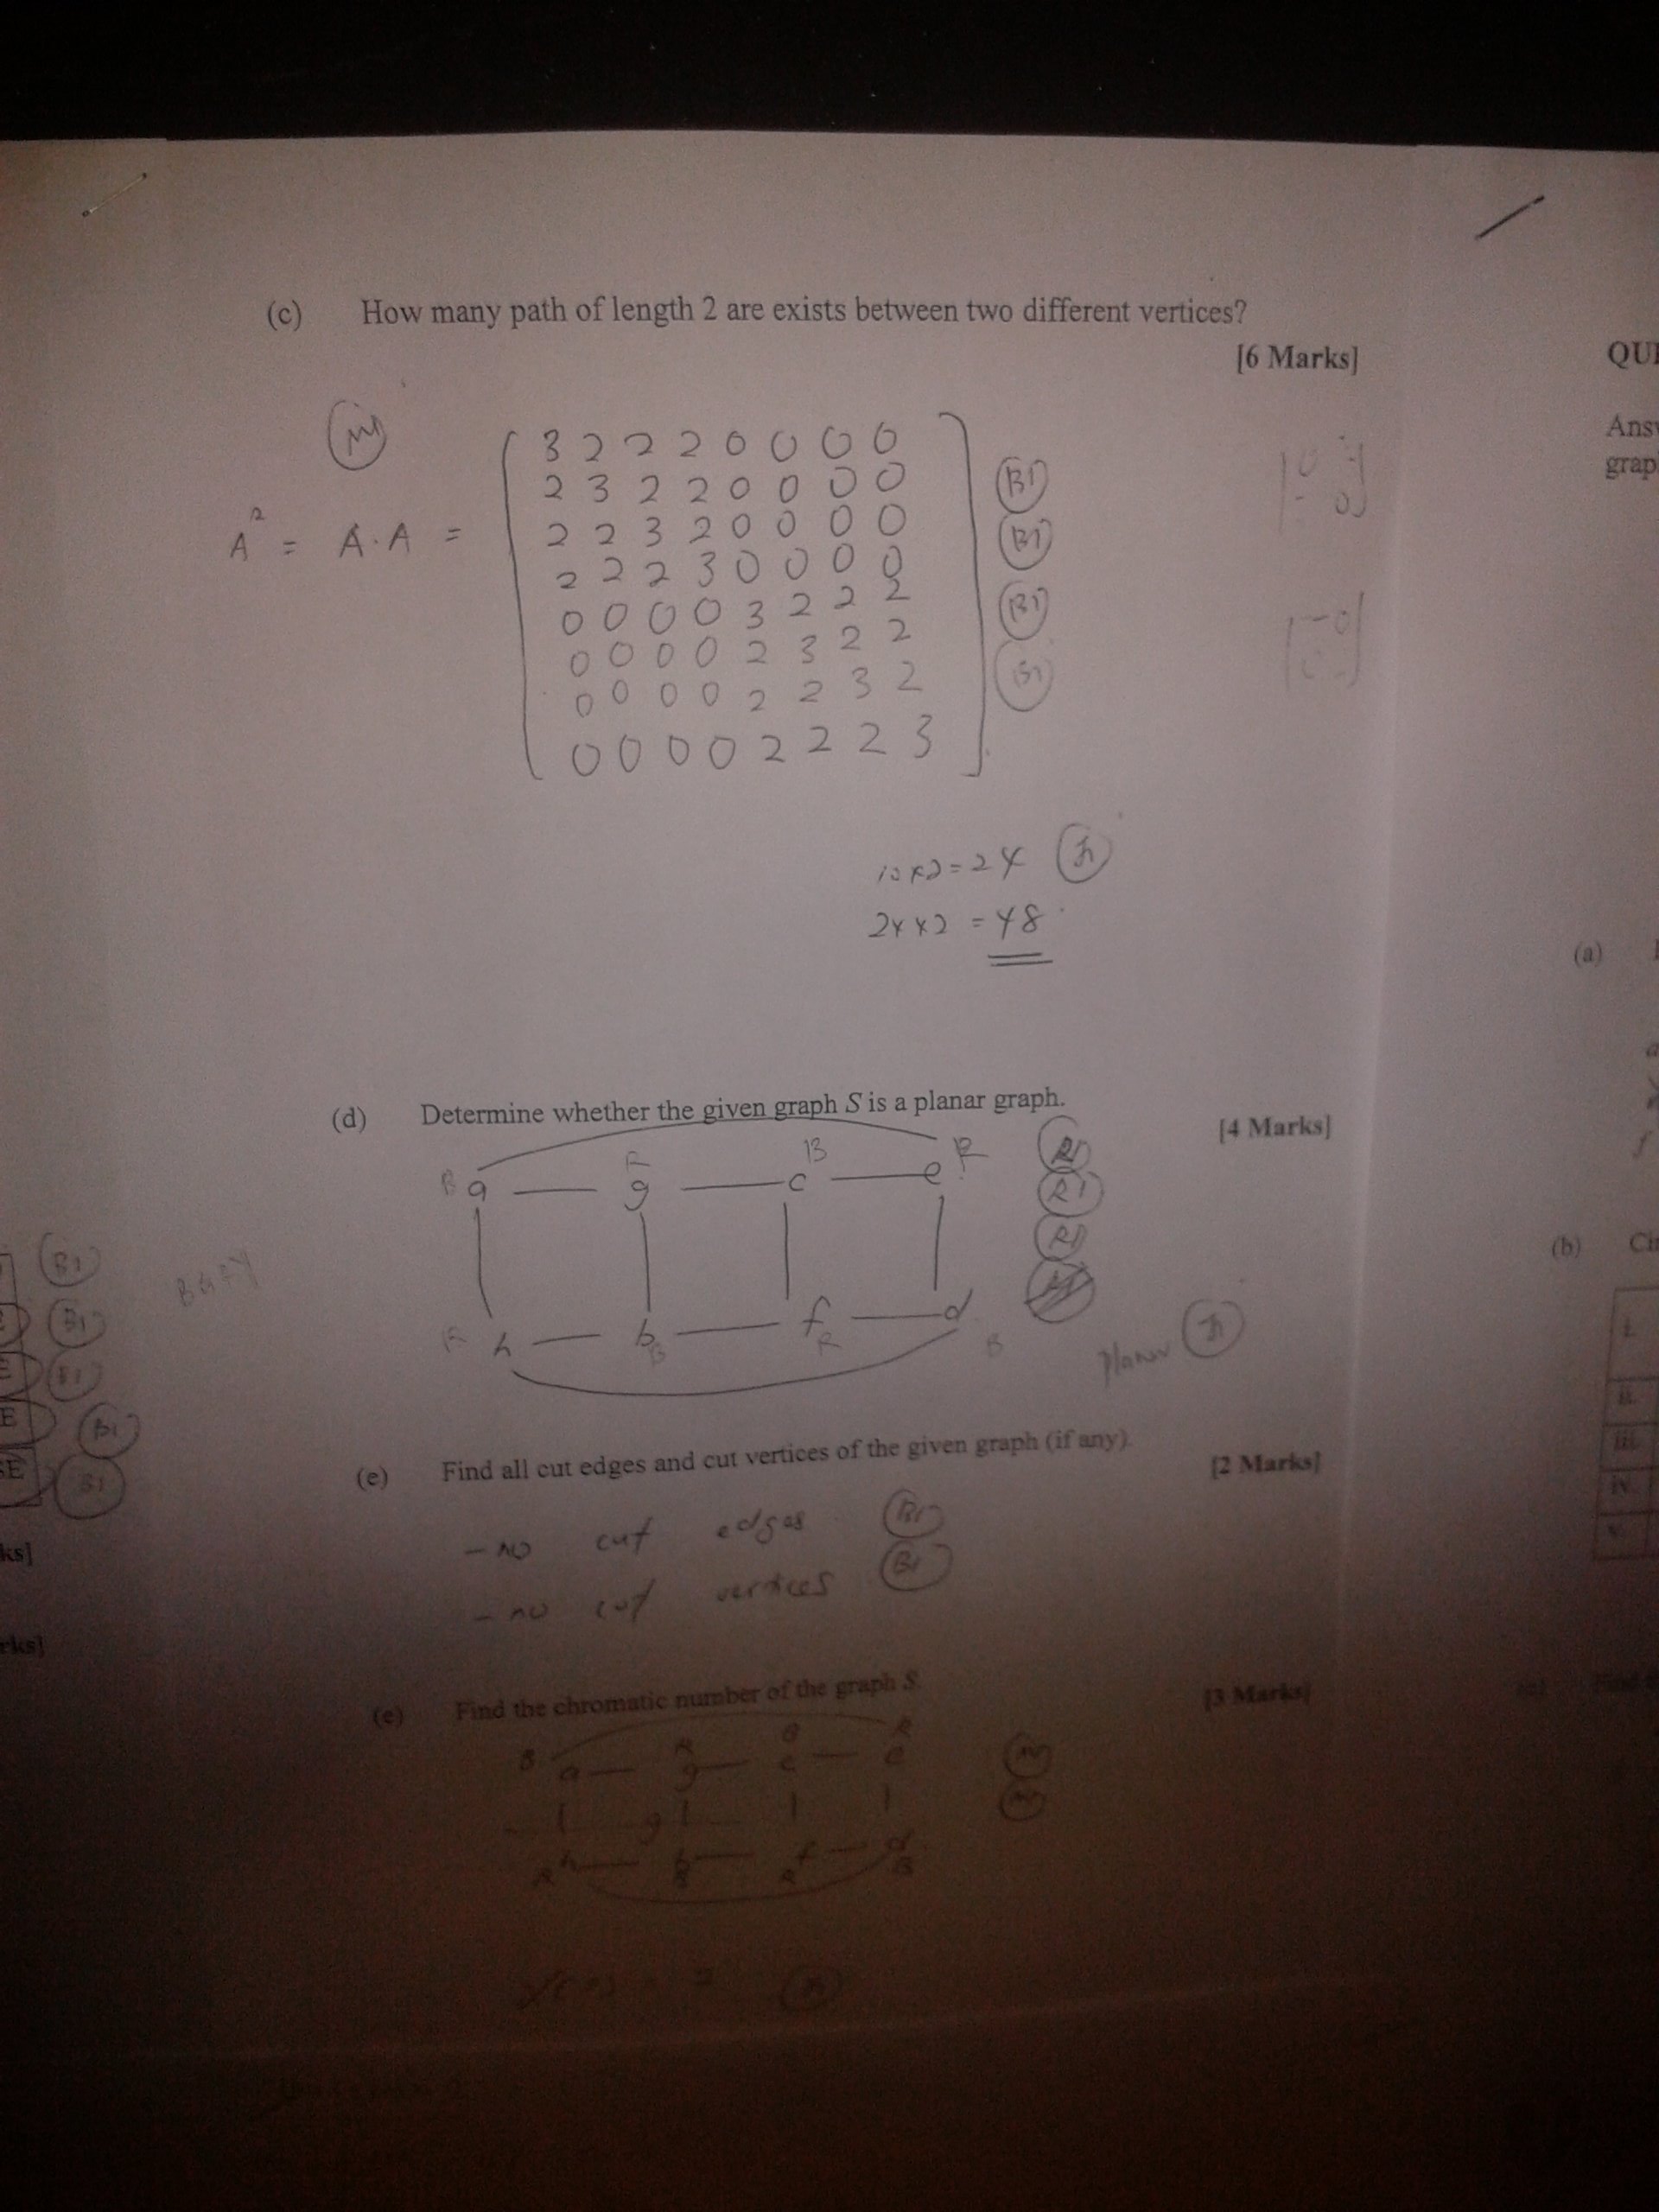 (c) How many path of length 2 are exists between two different vertices?
[6 Marks]
QU
Ans
grap
M1
A² = A·A =
3 2 2 2 0 0 0 0
2 3 2 2 0 0 0 0
2 2 3 2 0 0 0 0
2 2 2 3 0 0 0 0
0 0 0 0 3 2 2 2
0 0 0 0 2 3 2 2
0 0 0 0 2 2 3 2
0 0 0 0 2 2 2 3
B1
B1
B1
B1
12 x 2 = 24
24 x 2 = 48
(a)
(d) Determine whether the given graph S is a planar graph.
[4 Marks]
B R B R
a g c e
h b f d
R B R B
planar
(b) Ci
B1
B1
B1
E B1
SE B1
(e) Find all cut edges and cut vertices of the given graph (if any).
[2 Marks]
- no cut edges B1
- no cut vertices B1
ks]
rks]
(e) Find the chromatic number of the graph S.
[3 Marks]
B R B R
a g c e
h b f d
i.
ii.
iii.
iv.
v.